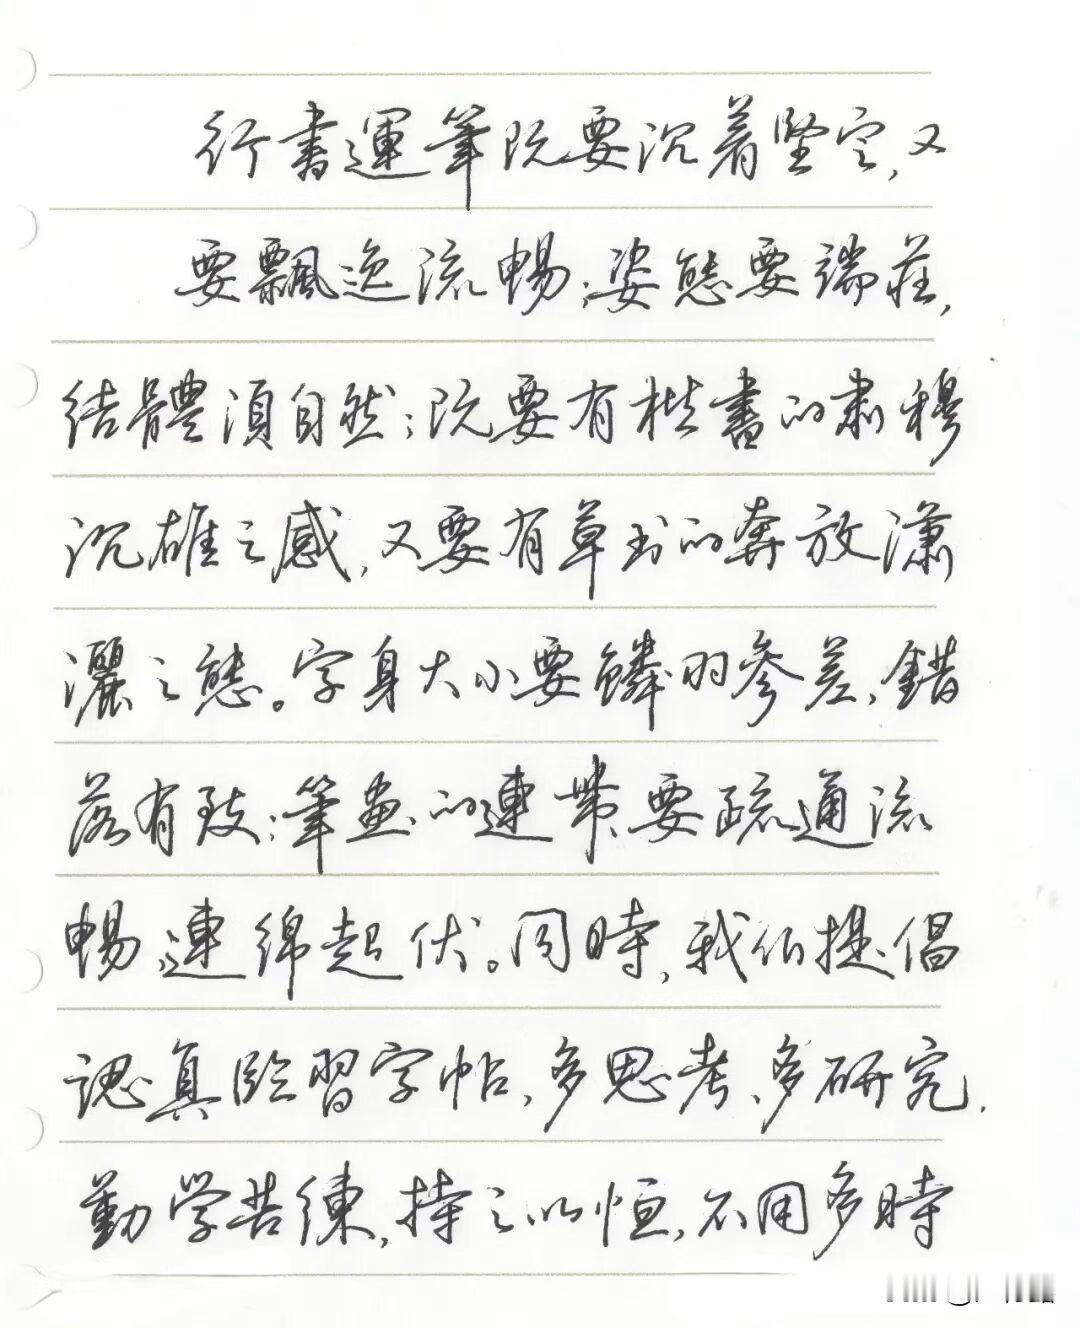 行書運筆既要沉着堅定,又
要飄逸流暢;姿態要端莊,
結體須自然;既要有楷書的肅穆
沉雄之感,又要有草书的奔放瀟
灑之態。字身大小要鱗羽參差,錯
落有致;筆畫的連带要疏通流
暢,連綿起伏。同時,我们提倡
認真臨習字帖,多思考、多研究,
勤学苦練,持之以恒,不用多時